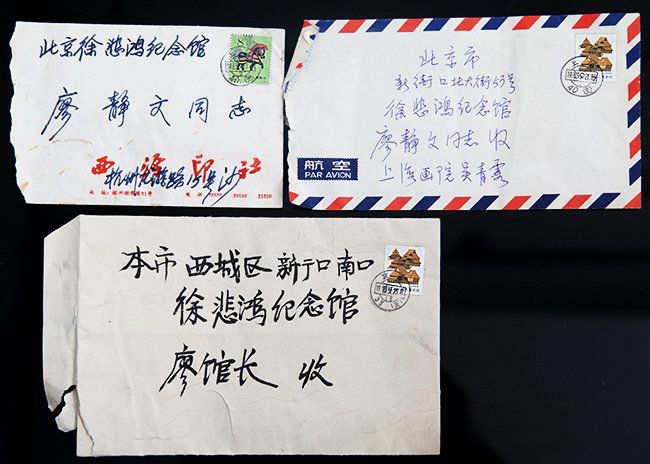 北京徐悲鸿纪念馆
廖静文同志
西泠印社
杭州龙游路15号沙
8
北京市
新街口北大街53号
徐悲鸿纪念馆
廖静文同志收
上海画院吴青霞
航空
PAR AVION
本市西城区新街口南口
徐悲鸿纪念馆
廖馆长 收